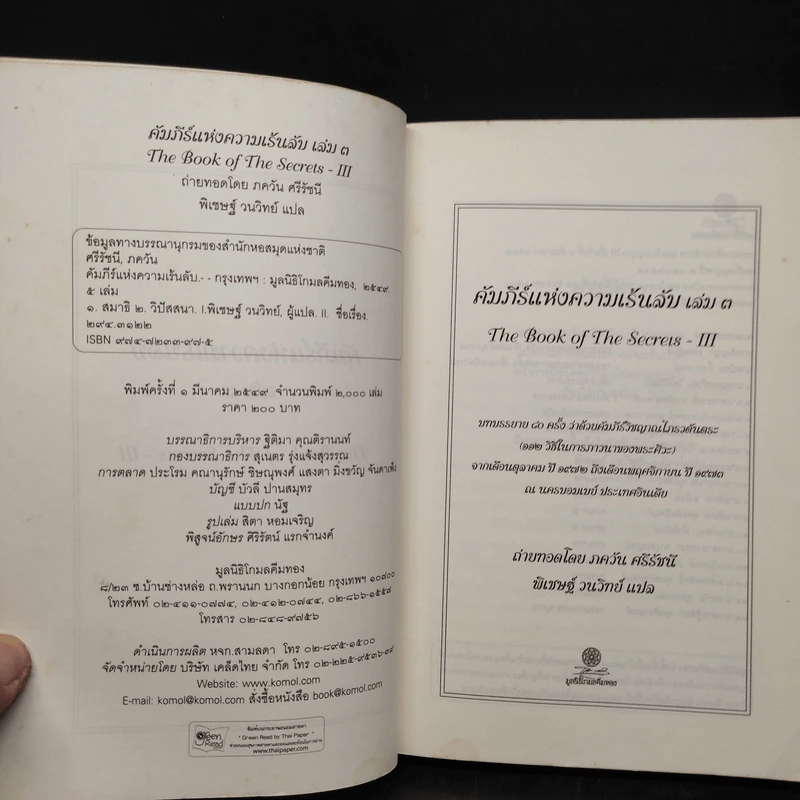 คัมภีร์แห่งความเร้นลับ เล่ม ๓
The Book of The Secrets - III
ถ่ายทอดโดย ภควัน ศรีรัชนี
พิเชษฐ์ วนวิทย์ แปล
ข้อมูลทางบรรณานุกรมของสำนักหอสมุดแห่งชาติ
ศรีรัชนี, ภควัน
คัมภีร์แห่งความเร้นลับ.- - กรุงเทพฯ : มูลนิธิโกมลคีมทอง, ๒๕๔๙.
๕ เล่ม
๑. สมาธิ ๒. วิปัสสนา. I.พิเชษฐ์ วนวิทย์, ผู้แปล. II. ชื่อเรื่อง.
๒๙๔.๓๑๒๒
ISBN ๙๗๔-๗๒๓๓-๙๗-๕
พิมพ์ครั้งที่ ๑ มีนาคม ๒๕๔๙ จำนวนพิมพ์ ๒,๐๐๐ เล่ม
ราคา ๒๐๐ บาท
บรรณาธิการบริหาร ฐิติมา คุณติรานนท์
กองบรรณาธิการ สุเนตร รุ่งแจ้งสุวรรณ
การตลาด ประโรม คณานุรักษ์ ชิษณุพงศ์ แสงตา มิ่งขวัญ จันดาเพ็ง
บัญชี บัวลี ปานสมุทร
แบบปก นัฐ
รูปเล่ม สิตา หอมเจริญ
พิสูจน์อักษร ศิริรัตน์ แรกจำนงค์
มูลนิธิโกมลคีมทอง
๘/๒๓ ซ.บ้านช่างหล่อ ถ.พรานนก บางกอกน้อย กรุงเทพฯ ๑๐๗๐๐
โทรศัพท์ ๐๒-๔๑๑-๐๗๔๔, ๐๒-๔๑๒-๐๗๔๔, ๐๒-๘๖๖-๑๕๕๗
โทรสาร ๐๒-๘๔๘-๙๗๕๖
ดำเนินการผลิต หจก.สามลดา โทร ๐๒-๘๙๕-๑๕๐๐
จัดจำหน่ายโดย บริษัท เคล็ดไทย จำกัด โทร ๐๒-๒๒๕-๙๕๓๖-๓๙
Website: www.komol.com
E-mail: komol@komol.com สั่งซื้อหนังสือ book@komol.com
green Read
พิมพ์บนกระดาษถนอมสายตา
" Green Read by Thai Paper "
www.thaipaper.com
คัมภีร์แห่งความเร้นลับ เล่ม ๓
The Book of The Secrets - III
บทบรรยาย ๘๐ ครั้ง ว่าด้วยคัมภีร์วิชญาณไภรวตันตระ
(๑๑๒ วิธีในการภาวนาของพระศิวะ)
จากเดือนตุลาคม ปี ๑๙๗๒ ถึงเดือนพฤศจิกายน ปี ๑๙๗๓
ณ นครบอมเบย์ ประเทศอินเดีย
ถ่ายทอดโดย ภควัน ศรีรัชนี
พิเชษฐ์ วนวิทย์ แปล
มูลนิธิโกมลคีมทอง